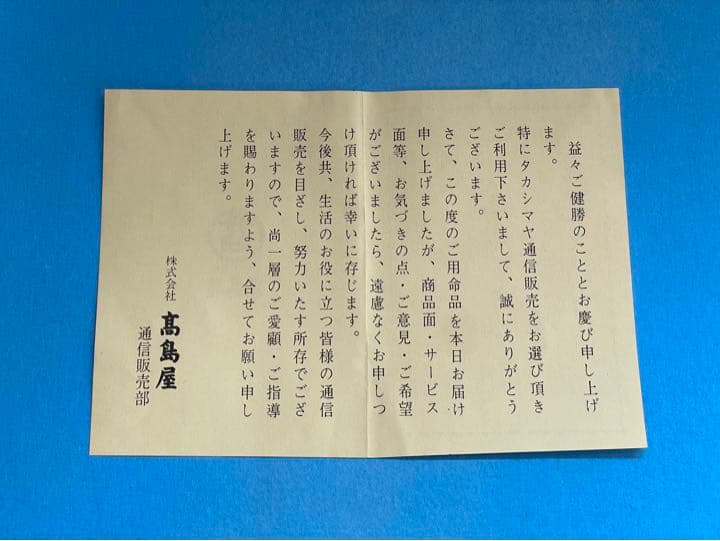 益々ご健勝のこととお慶び申し上げ
ます。
特にタカシマヤ通信販売をお選び頂き
ご利用下さいまして、誠にありがとう
ございます。
さて、この度のご用命品を本日お届け
申し上げましたが、商品面・サービス
面等、お気づきの点・ご意見・ご希望
がございましたら、遠慮なくお申しつ
け頂ければ幸いに存じます。
今後共、生活のお役に立つ皆様の通信
販売を目ざし、努力いたす所存でござ
いますので、尚一層のご愛顧・ご指導
を賜わりますよう、合せてお願い申し
上げます。
株式会社 髙島屋
通信販売部